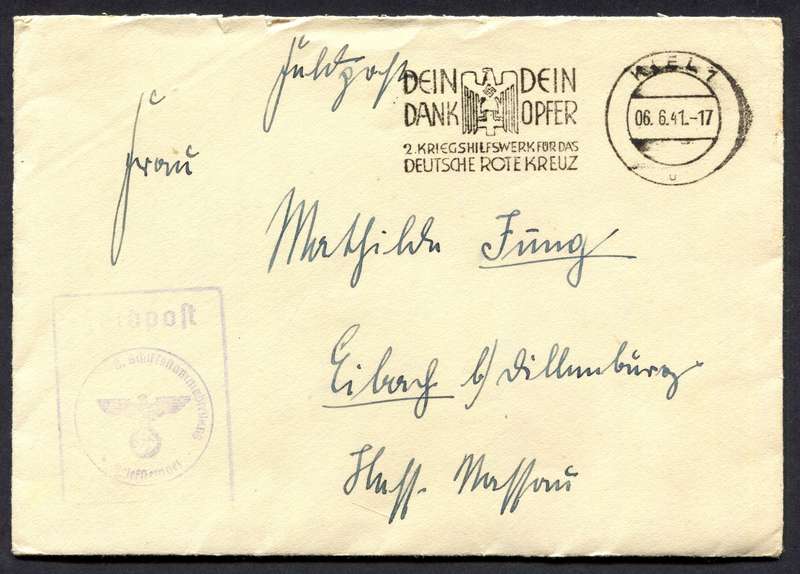 Feldpost
DEIN DEIN
DANK OPFER
2. KRIEGSHILFSWERK FÜR DAS
DEUTSCHE ROTE KREUZ
KIEL 1
06. 6. 41. - 17
u
Frau
Mathilde Jung
Eibach b/ Dillenburg
Hess. Nassau
Feldpost
Schiffsstammabteilung
Briefstempel